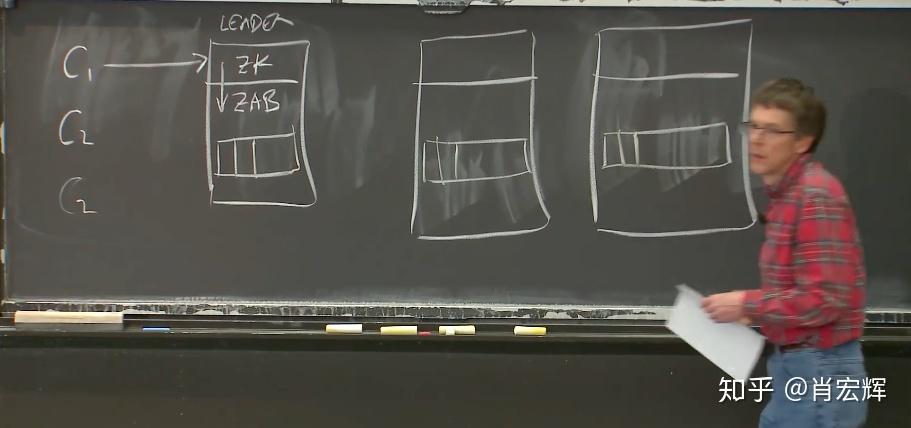 LEADER
C1
ZK
ZAB
C2
C2
知乎 @肖宏辉